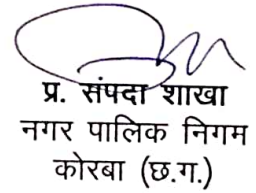 प्र. संपदा शाखा
नगर पालिक निगम
कोरबा (छ.ग.)